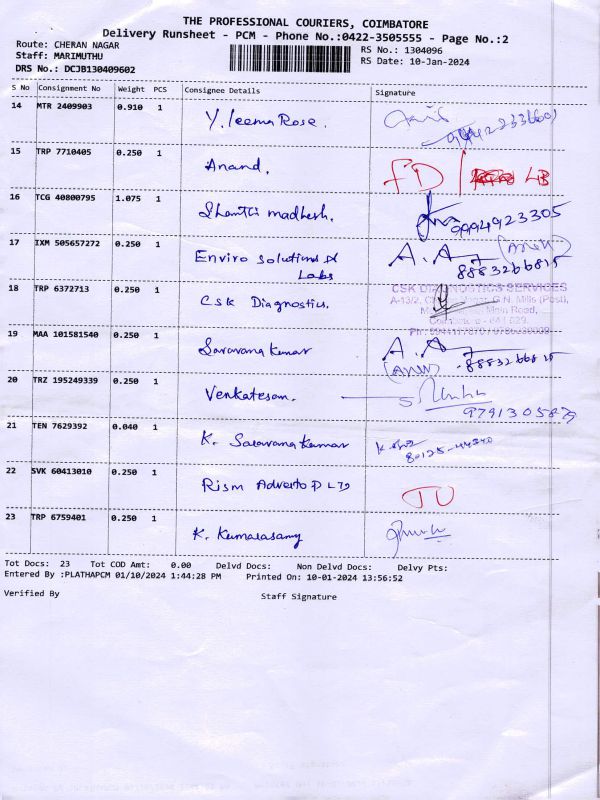 THE PROFESSIONAL COURIERS, COIMBATORE
Delivery Runsheet - PCM - Phone No.:0422-3505555 - Page No.:2
Route: CHERAN NAGAR
RS No.: 1304096
Staff: MARIMUTHU
RS Date: 10-Jan-2024
DRS No.: DCJB130409602
S No Consignment No Weight PCS Consignee Details Signature
14 MTR 2409903 0.910 1 Y. leema Rose.
15 TRP 7710405 0.250 1 Anand. FD / LB
16 TCG 40800795 1.075 1 Shanthi madhesh. 9994923305
17 IXM 505657272 0.250 1 Enviro Solutions A. (Arun)
Labs 8883266815
18 TRP 6372713 0.250 1 CSK Diagnostics. CSK DIAGNOSTICS SERVICES
19 MAA 101581540 0.250 1 Saravana Kumar A.
(Arun) 8883266815
20 TRZ 195249339 0.250 1 Venkatesan.
21 TEN 7629392 0.040 1 K. Saravana Kumar
80125-44340
22 SVK 60413010 0.250 1 Rism Adverto P LTD TU
23 TRP 6759401 0.250 1 K. Kumarasamy
Tot Docs: 23 Tot COD Amt: 0.00 Delvd Docs: Non Delvd Docs: Delvy Pts:
Entered By :PLATHAPCM 01/10/2024 1:44:28 PM Printed On: 10-01-2024 13:56:52
Verified By Staff Signature